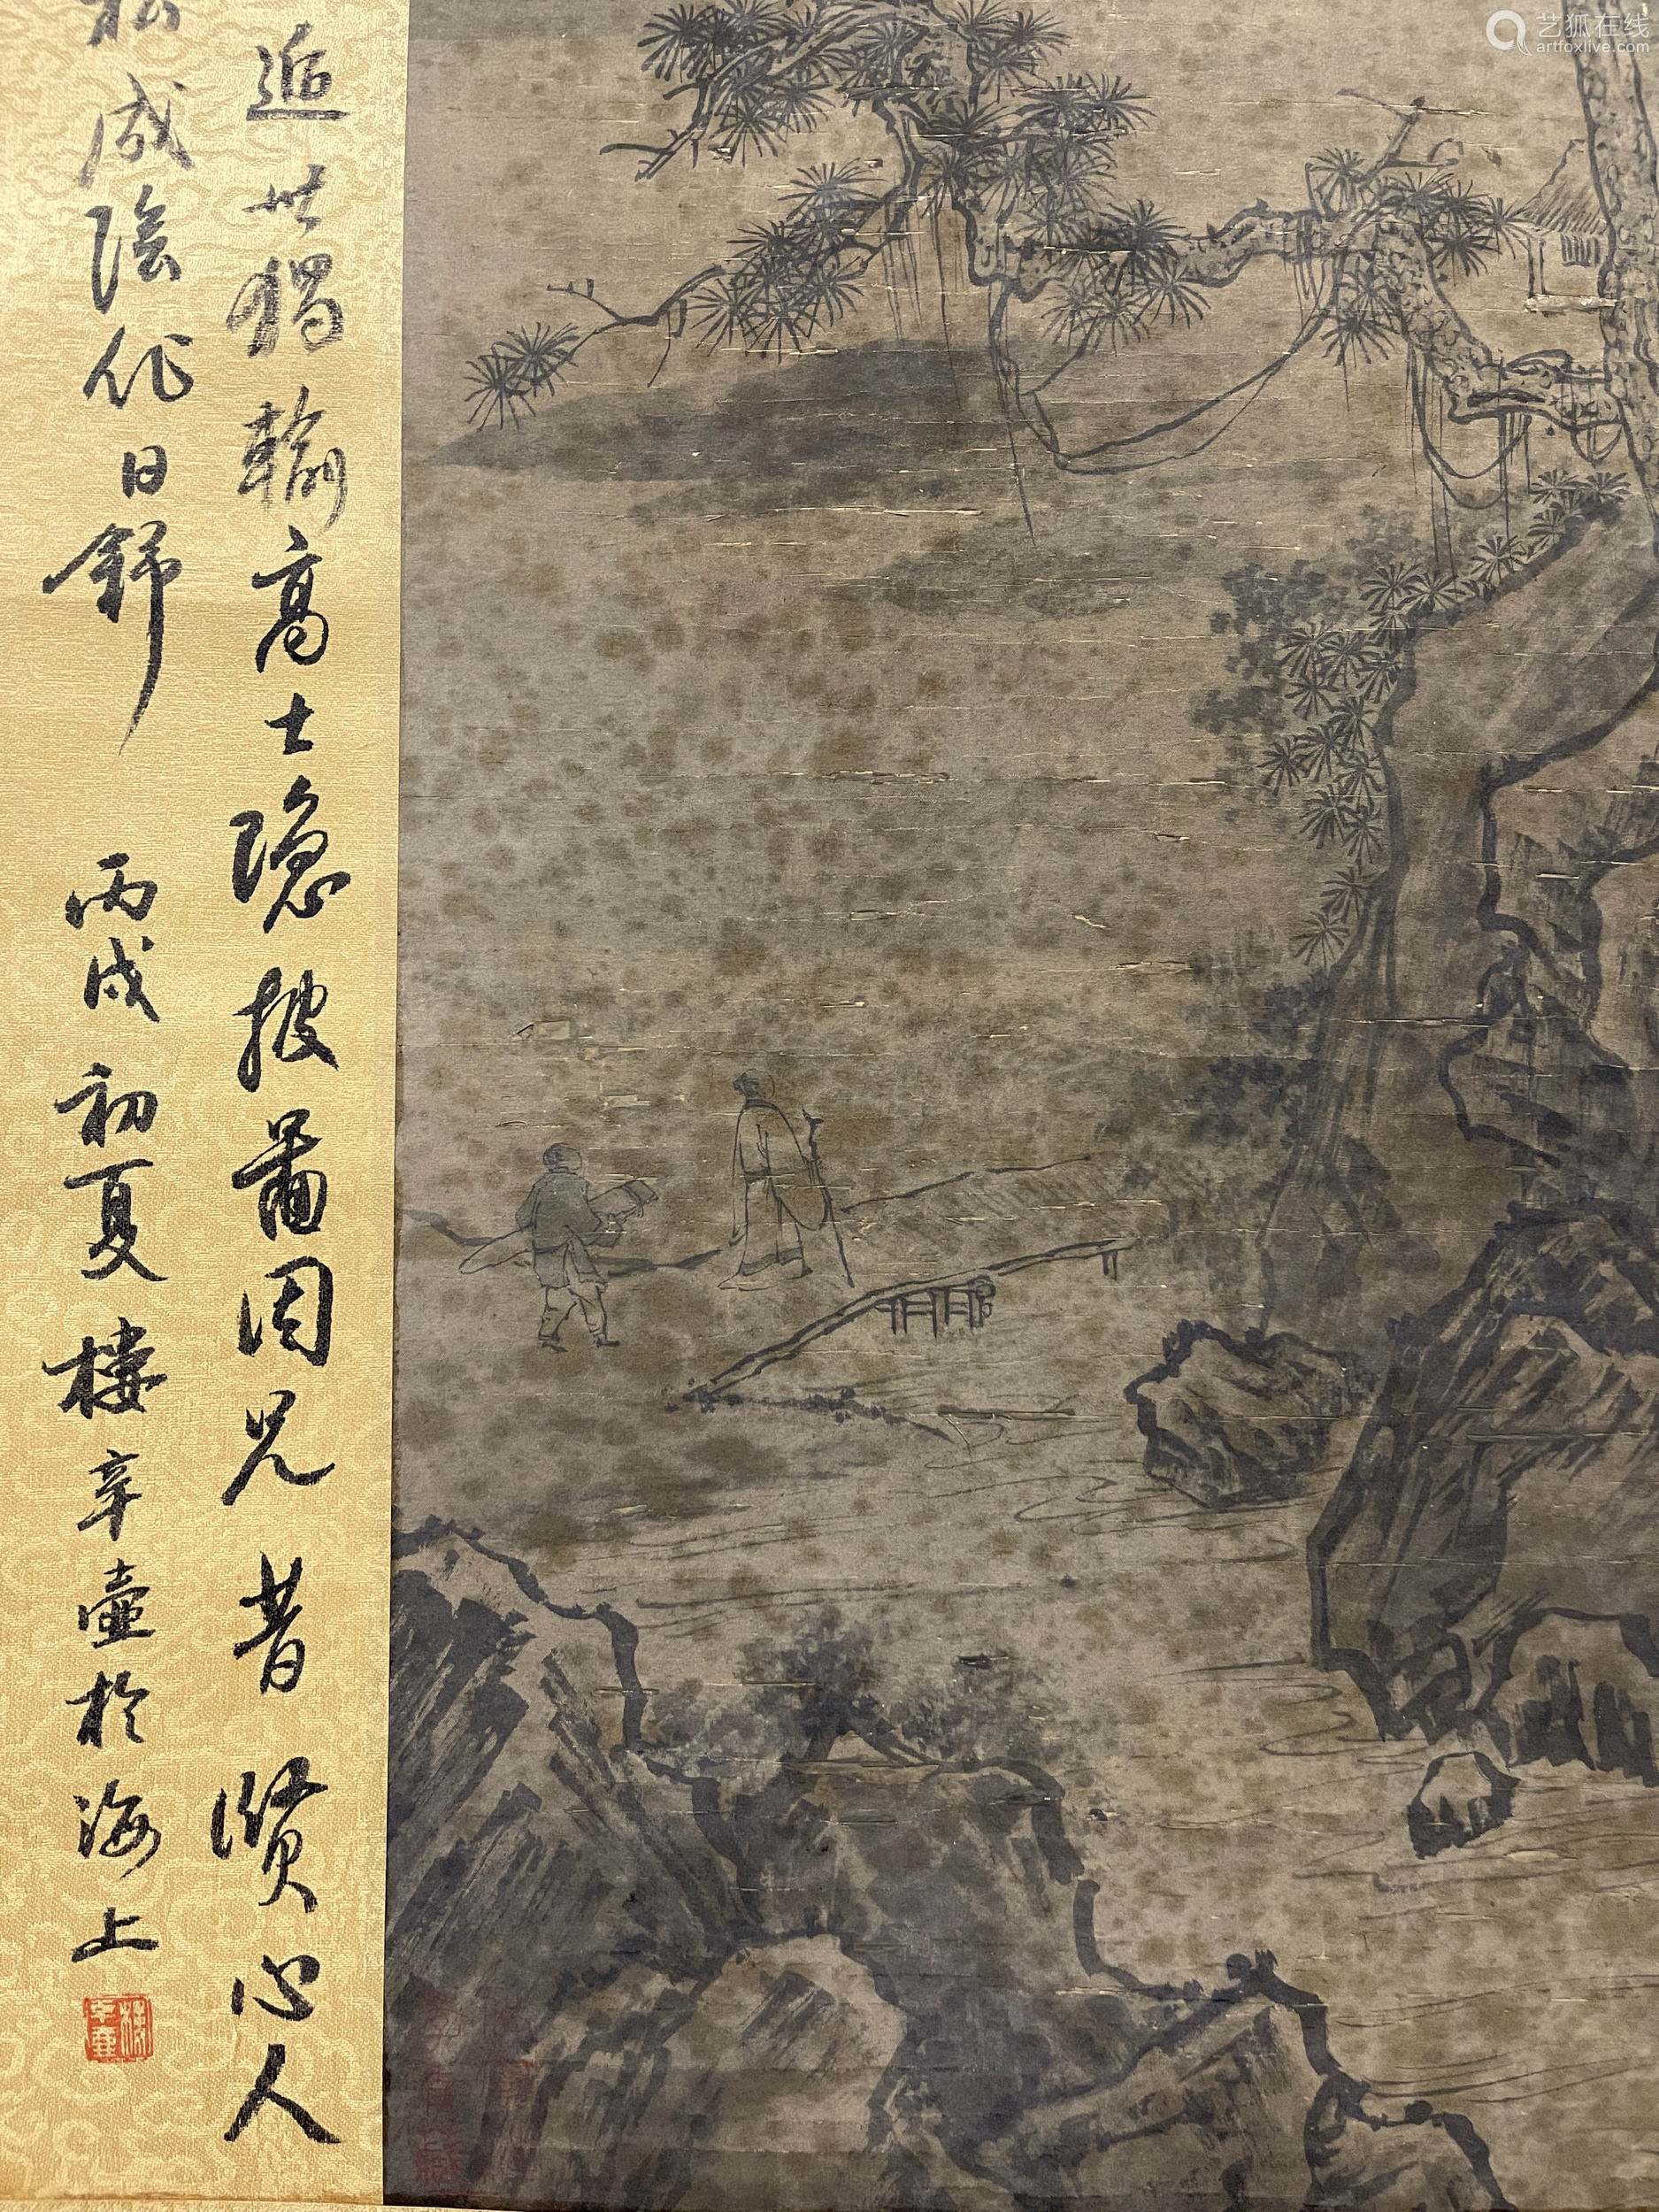 遁世獨輸高士隐披圖因見昔賢心人
松成陰化日舒 丙戌初夏樓辛壺於海上
樓辛壺
艺狐在线
artfoxlive.com